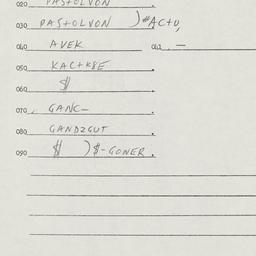 020 PAS+OLVON .
030 PAS+OLVON )#AC+U,
040 AVEK 042 —
050 KAC+K8E .
060 $ .
070 GANC— .
080 GANDZGUT .
090 $ )$-GONER .